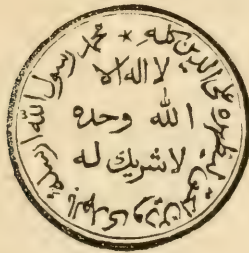 لا اله الا
الله وحده
لا شريك له
محمد رسول الله ارسله بالهدى ودين الحق ليظهره على الدين كله *